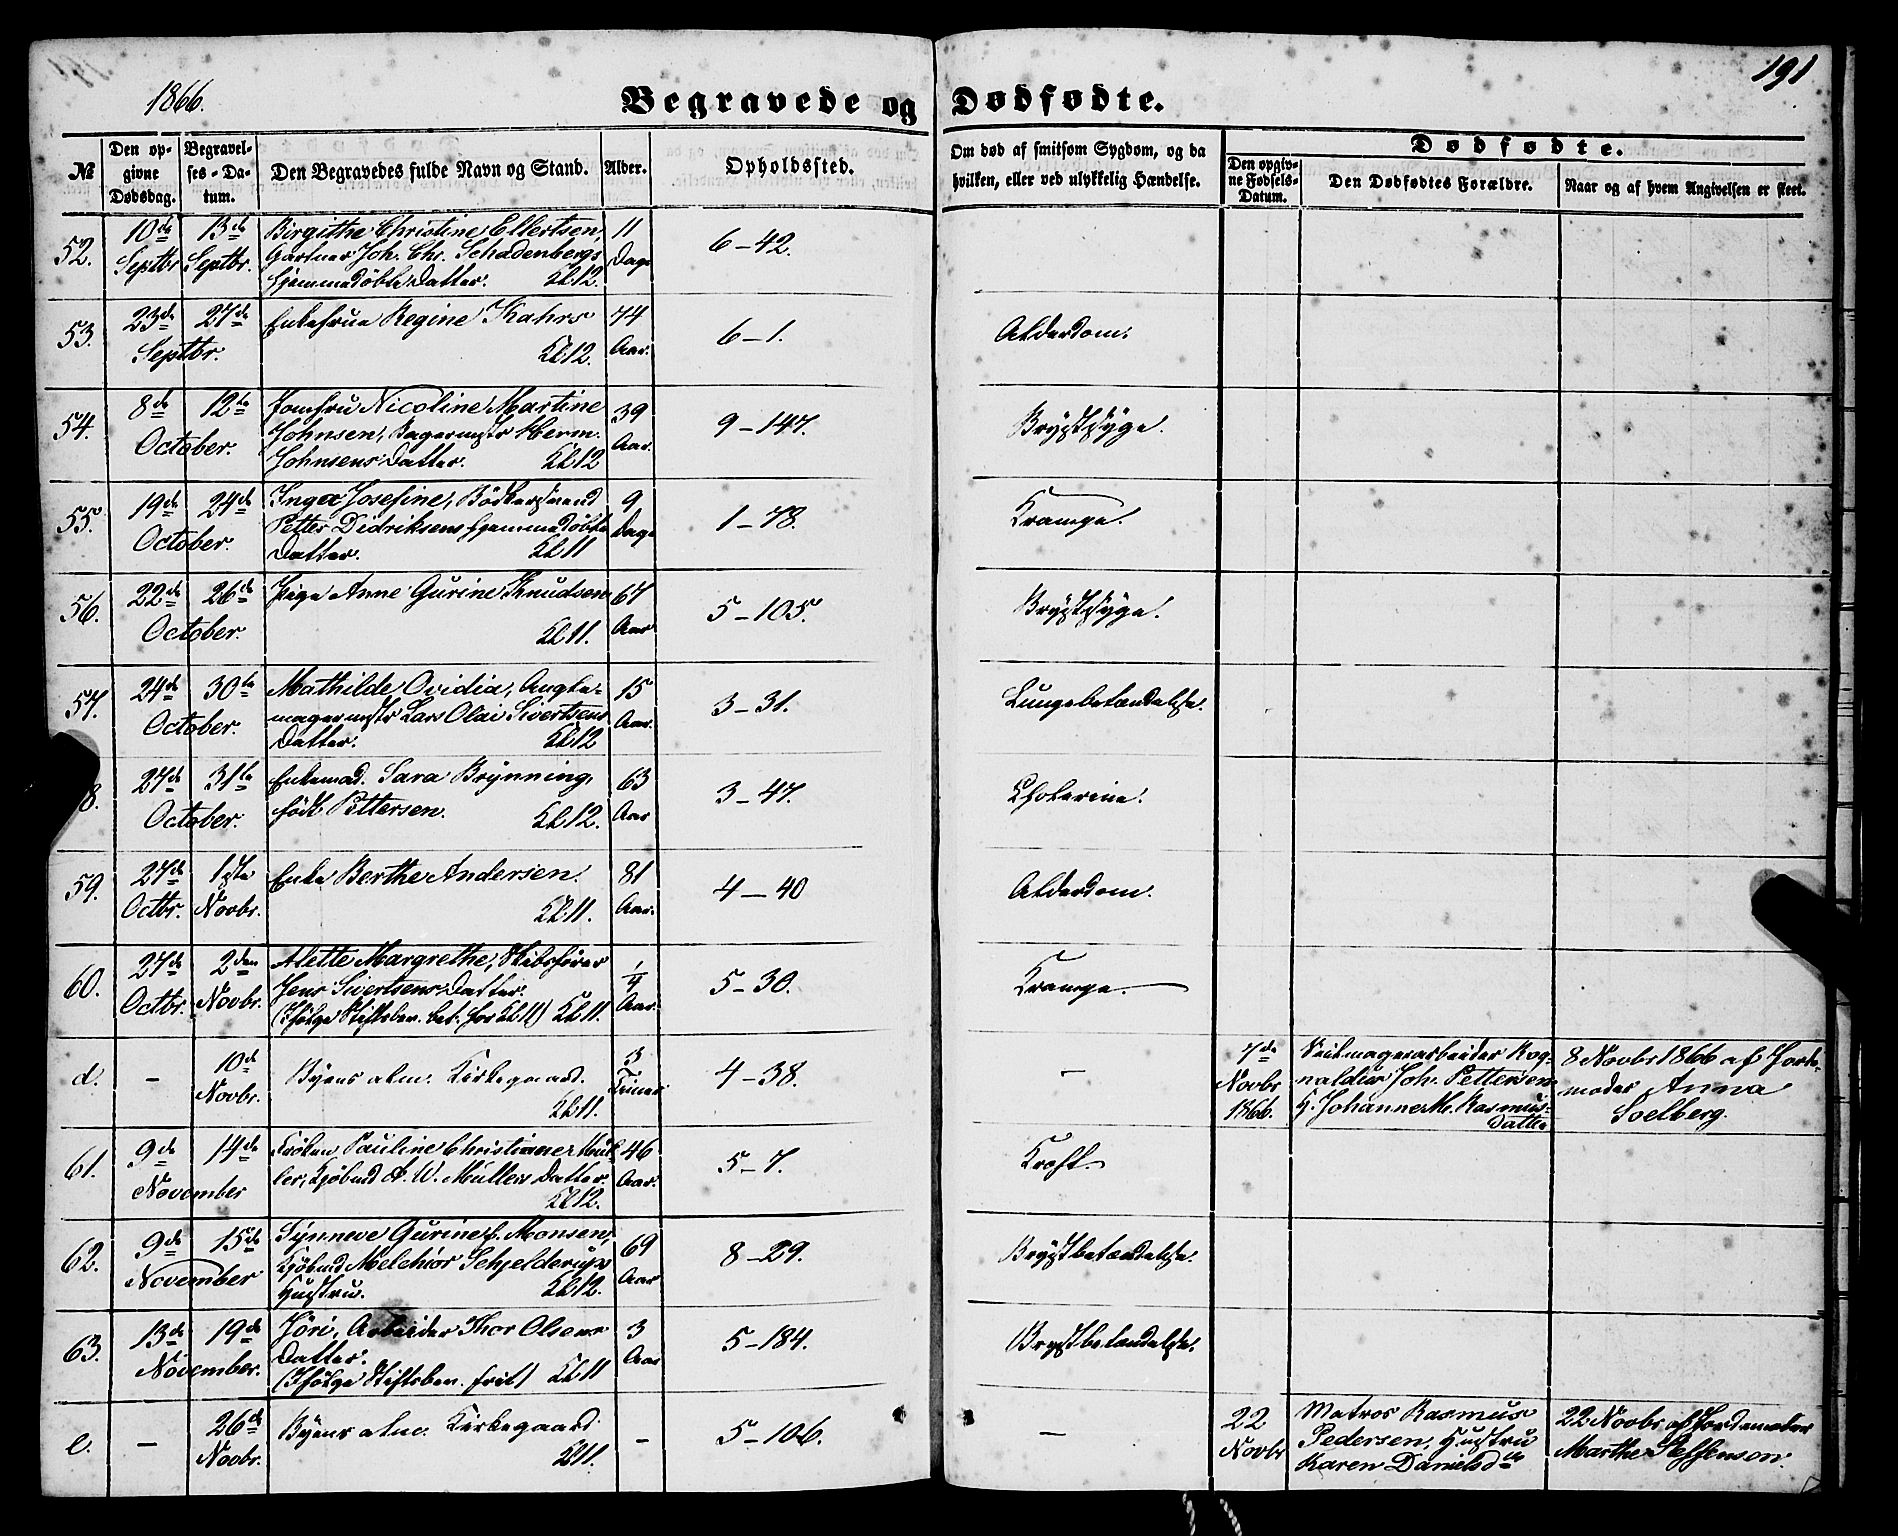 1866.
191
Begravede og Dødfødte.
№
Den opgivne Dødsdag.
Begravelses-Datum.
Den Begravedes fulde Navn og Stand.
Alder.
Opholdssted.
Om død af smitsom Sygdom, og da hvilken, eller ved ulykkelig Hændelse.
Dødfødte.
Den opgivne Fødsels-Datum.
Den Dødfødtes Forældre.
Naar og af hvem Angivelsen er skeet.
52. 10de Septbr 13de Septbr. Birgithe Christine Ellertsen, 11 Dage 6-42.
Gartner Joh. Chr. Schadenbergs
hjemmedøbte Datter. Kl 12.
53. 23de 27de Septbr. Enkefrue Regine Kahrs 74 Aar. 6-1. Alderdom.
Kl 12.
54. 8de 12te October. Jomfru Nicoline Martine 39 Aar. 9-147. Brystsyge.
Johnsen, Bagermstr Herm.
Johnsens Datter. Kl 12
55. 19de 24de October. Inga Josefine, Bødkersvend 9 Dage 1-78. Krampe.
Petter Didriksens hjemmedøbte
Datter. Kl 11
56. 22de 26de October. Pige Anne Gurine Knudsen 67 Aar 5-105. Brystsyge.
Kl 11.
57. 24de 30te October. Mathilde Ovidia, 15 Aar. 3-31. Lungebetændelse.
magermstr Lars Olai Sivertsens
Datter. Kl 12
8. 27de 31te October. Enkemad. Sara Brynning, 63 Aar 3-47. Cholerine.
født Pettersen. Kl 12.
59. 27de Octbr. 1ste Novbr. Enke Berthe Andersen. 81 Aar. 4-40 Alderdom.
Kl 11.
60. 27de Octbr. 2den Novbr. Alette Margrethe, Skibsfører 1/4 Aar. 5-30. Krampe.
Jens Sivertsens Datter.
(Ifølge Stiftsben. bet. for Kl 11) Kl 11.
d. - 10de Novbr. Byens alm. Kirkegaard. Kl 11. 3 Timer 4-38. -
7de Novbr 1866.
Seilmagerarbeider Rognaldius Joh. Pettersen
H. Johanne M. Rasmusdatter
8 Novbr 1866 af Jordemoder Anna
Soelberg.
61. 9de 14de November Frøken Pauline Christiane Müller, 46 Aar. 5-7. Kræft.
Kjøbmd A. W. Müllers Datter.
Kl 12.
62. 9de 15de November Synneve Gurine f. Monsen, 69 Aar 8-29. Brystbetændelse.
Kjøbmd Melchior Schjelderups
Hustru. Kl 12.
63. 13de 19de November. Jøri, Arbeider Thor Olsens 3 Aar 5-184. Brystbetændelse.
Datter.
(Ifølge Stiftsben. frit) Kl 11
e. - 26de Novbr. Byens alm. Kirkegaard Kl 11. - 5-106. -
22 Novbr
Matros Rasmus
Pedersen, Hustru
Karen Danielsdtr
22 Novbr af Jordemoder
Marthe Steffenson.